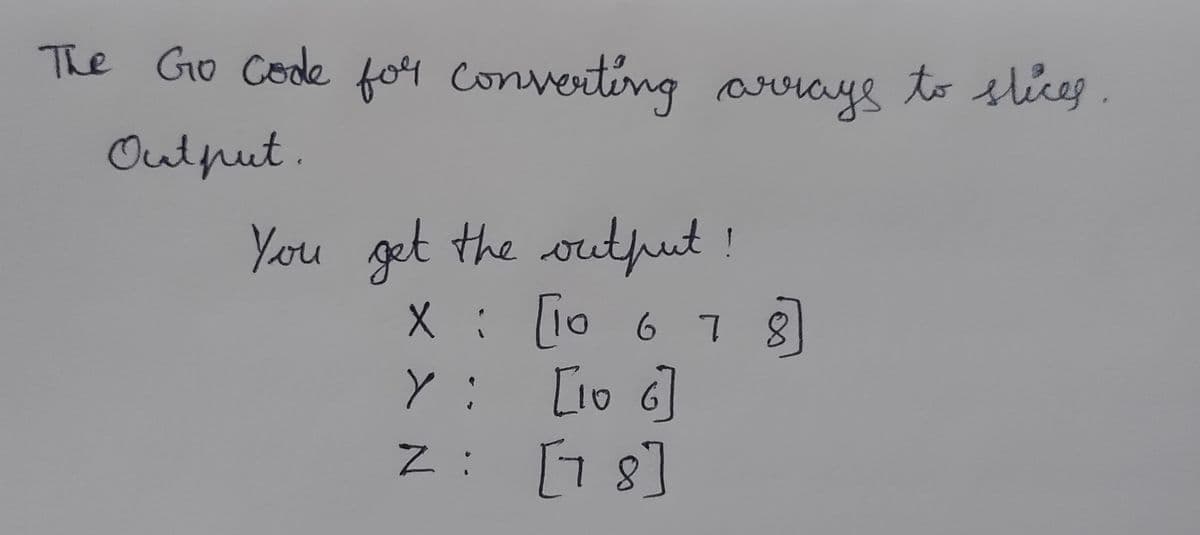 The Go Code for Converting arrays to slices.
Output.
You get the output!
X : [10 6 7 8]
Y : [10 6]
Z : [7 8]